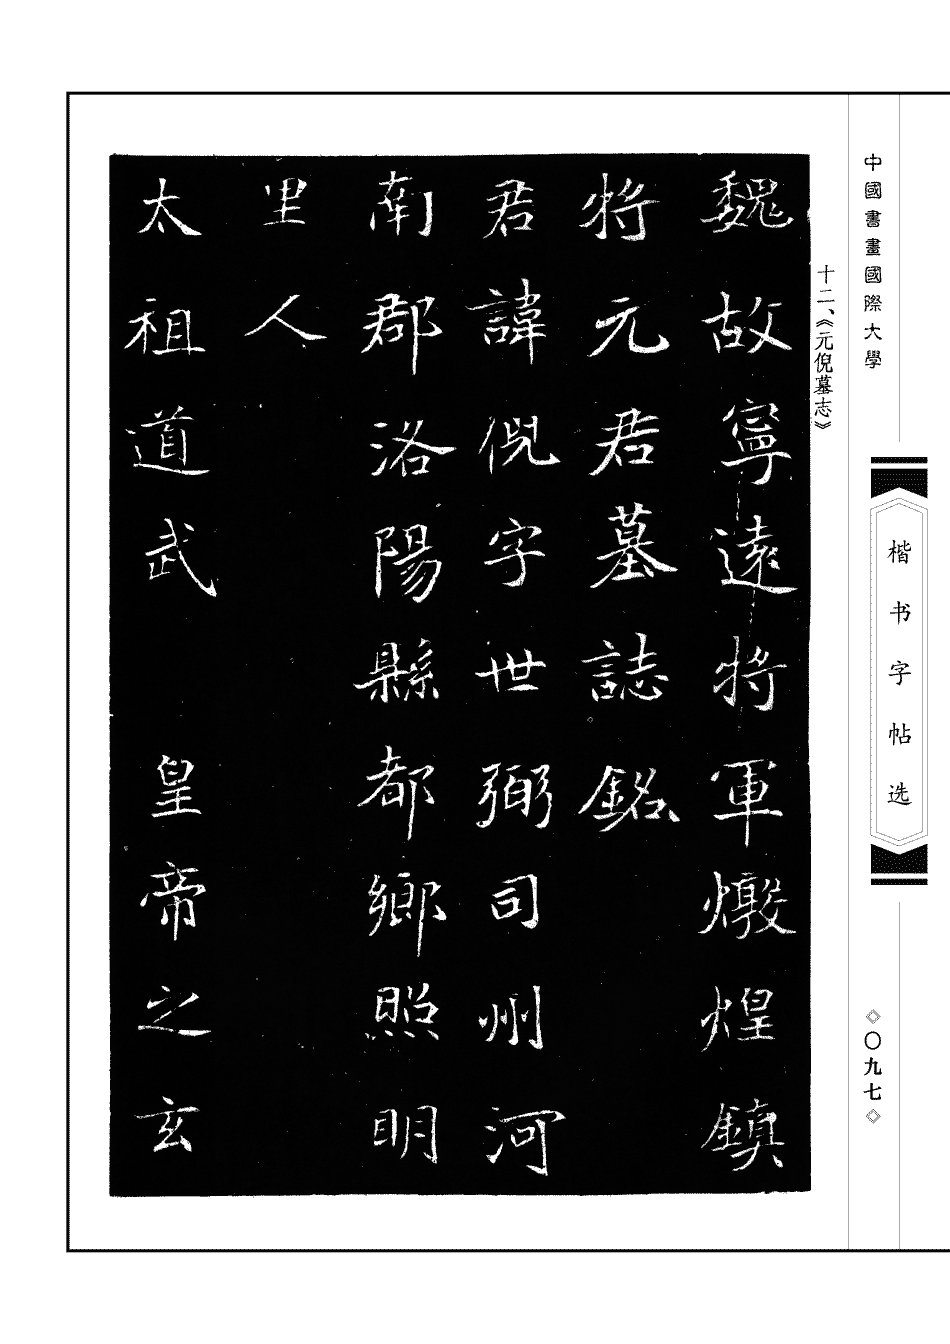 中國書畫國際大學
楷书字帖选
◇〇九七◇
十二、《元倪墓志》
魏故寧遠將軍燉煌鎮
將元君墓誌銘
君諱倪字世弼司州河
南郡洛陽縣都鄉照明
里人
太祖道武 皇帝之玄